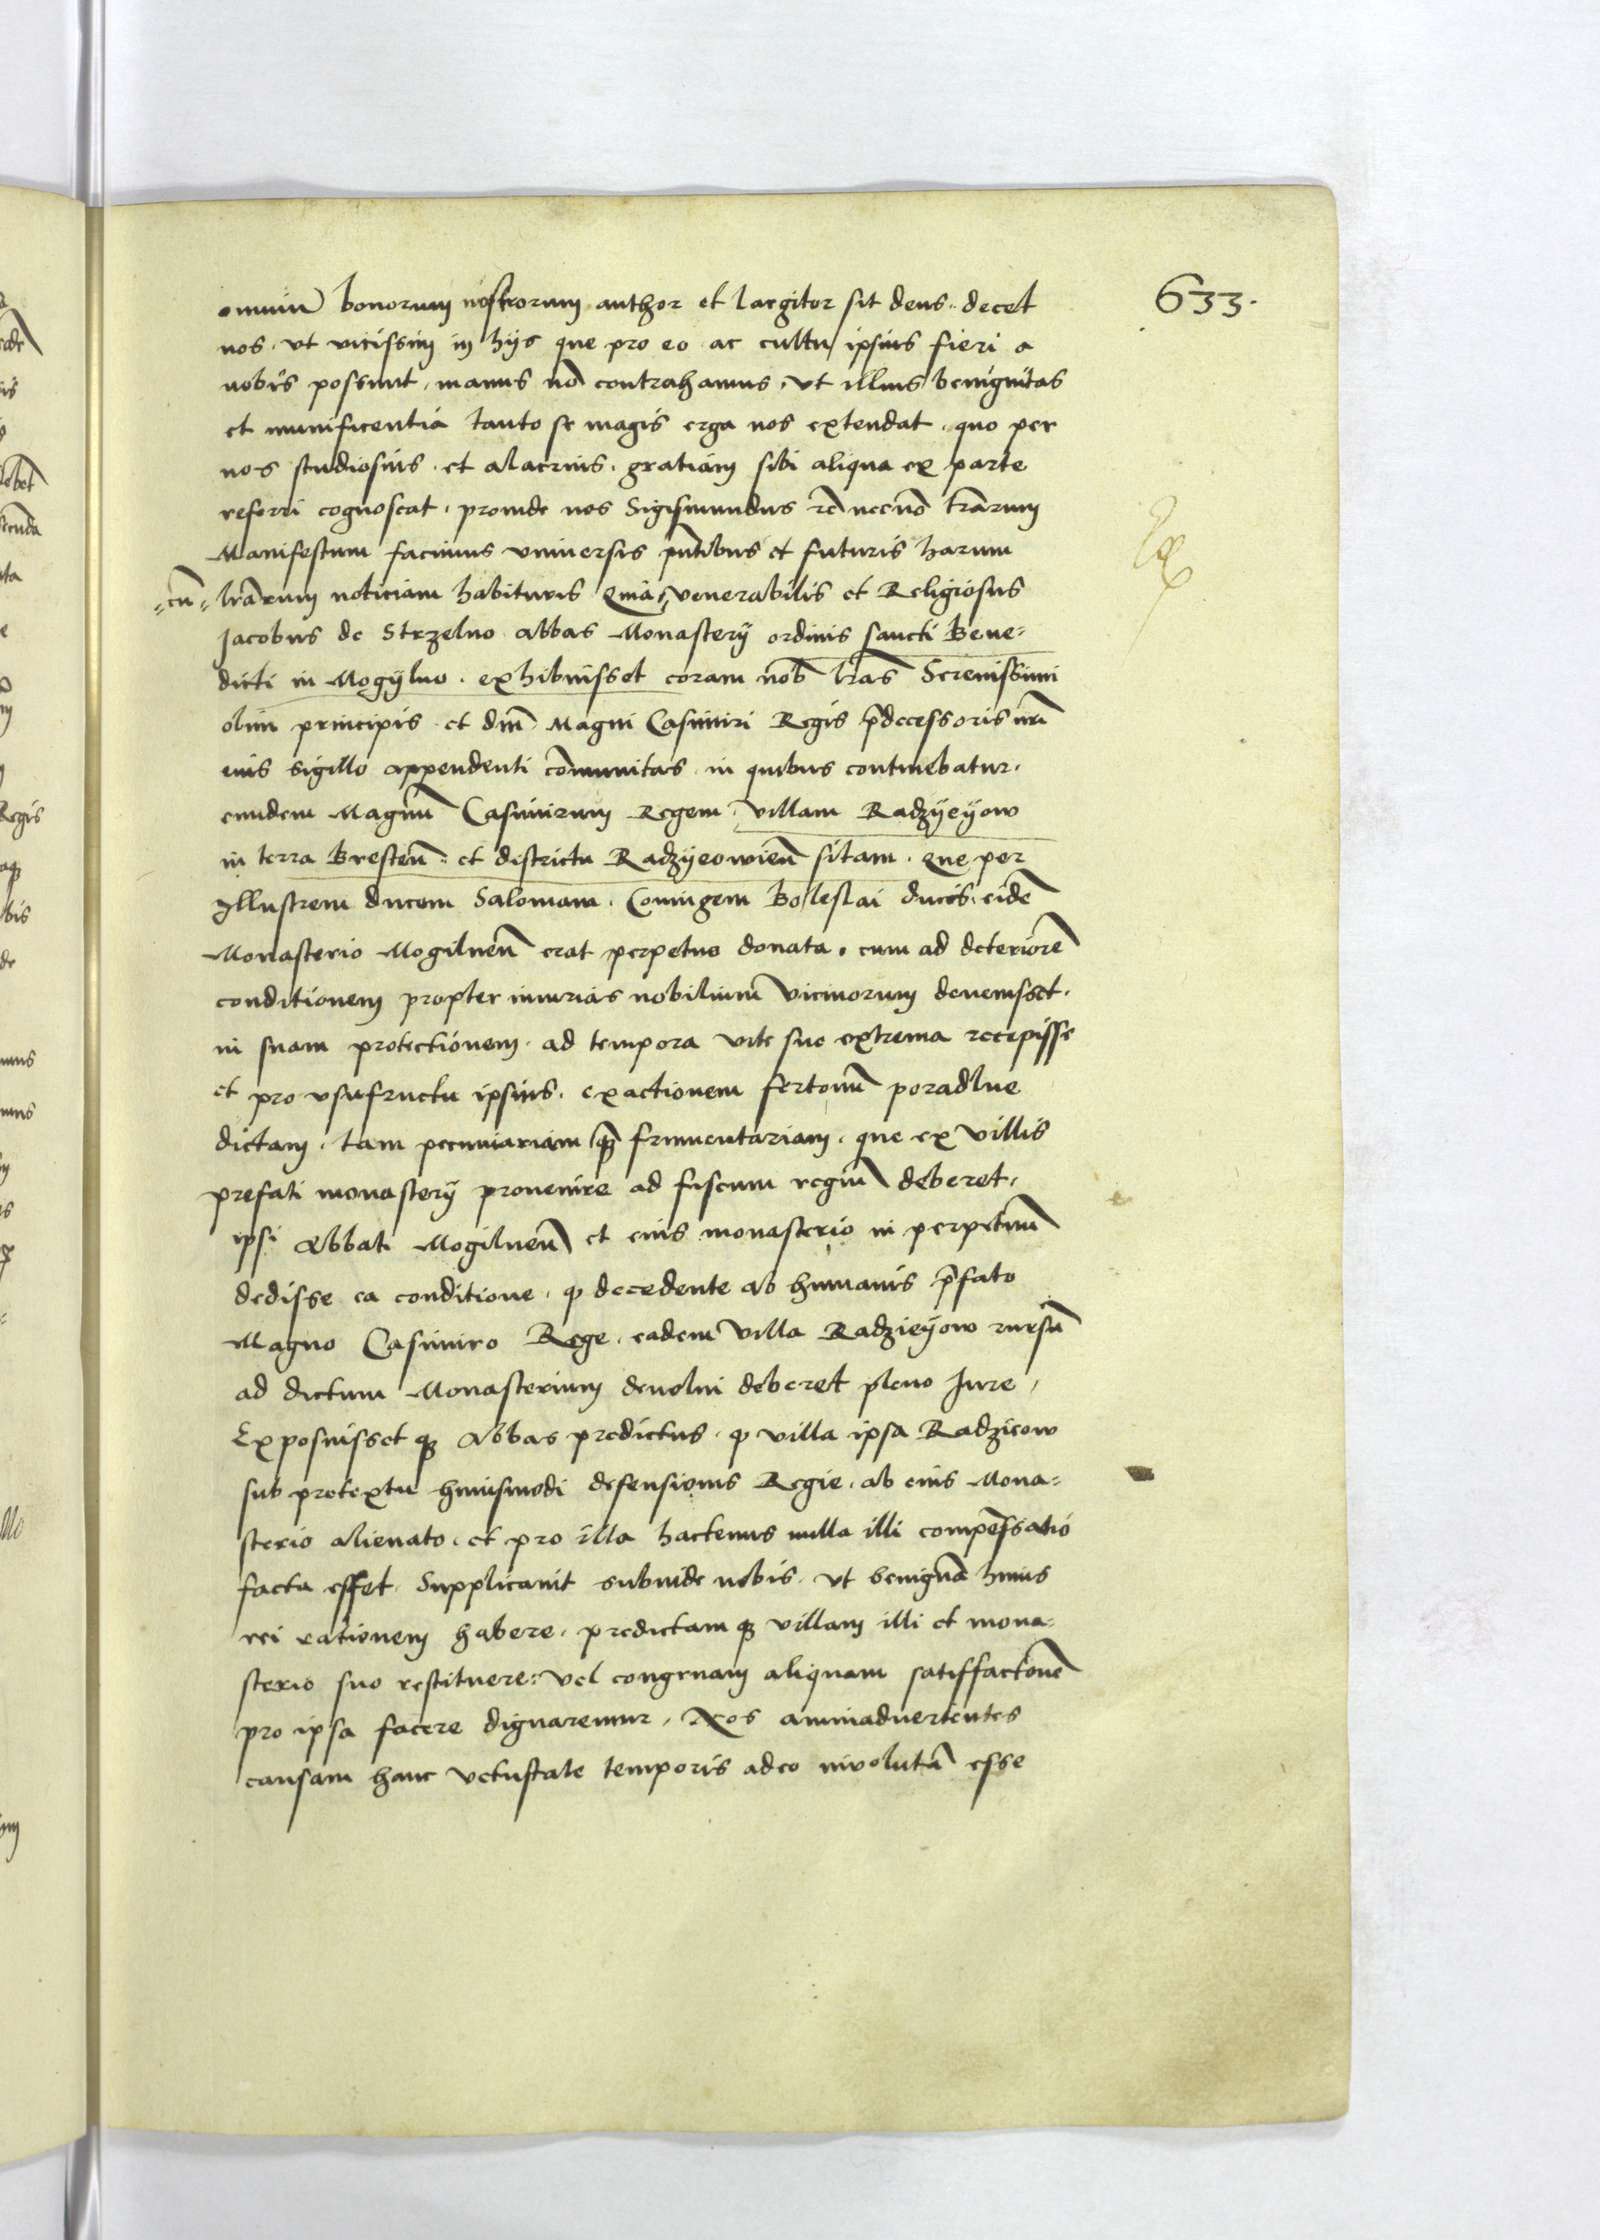 633.
omniũ bonorum nostrorum author et largitor sit deus. decet
nos. ut vicissim in hijs que pro eo ac cultu ipsius fieri a
nobis possunt, manus nõ contrahamus, ut illius benignitas
et munificentia tanto se magis erga nos extendat. quo per
nos studiosius. et alacrius. gratiam sibi aliqua ex parte
referri cognoscat. proinde nos Sigismundus rẽ necnõ trãrum
Manifestum facimus universis pñtibus et futuris harum
lrãrum noticiam habituris Quia =cũ= venerabilis et Religiosus
Jacobus de Strzelno Abbas Monasterij ordinis sancti Bene=
dicti in Mogijlno. exhibuisset coram nob̃ lrãs Serenissimi
olim principis et dñi Magni Casimiri Regis p̃decessoris nrĩ
eius sigillo appendenti cõmunitas. in quibus continebatur.
eundem Magnũ Casimirum Regem. villam Radzijeijow
in terra Bresteñ. et districtu Radzijeowieñ sitam. que per
Illustrem ducem Salomeam. Coniugem Boleslai ducis. eidẽ
Monasterio Mogilneñ erat perpetuo donata. cum ad deteriorẽ
conditionem propter iniurias nobiliũm vicinorum devenisset.
in suam protectionem. ad tempora vite sue extrema recepisse
et pro usufructu ipsius. exactionem fertonũ poradlne
dictam. tam pecuniariam q̃ frumentariam. que ex villis
prefati monasterij provenire ad fiscum regiũ deberet.
ipsi Abbati Mogilneñ et eius monasterio in perpetuũ
dedisse ea conditione. q decedente ab humanis p̃fato
Magno Casimiro Rege. eadem villa Radzieijow rursũ
ad dictum Monasterium devolui deberet pleno Jure,
Exposuisset q₃ Abbas predictus. q villa ipsa Radzieow
sub pretextu huiusmodi defensionis Regie. ab eius Mona=
sterio alienato. et pro illa hactenus nulla illi compẽsatio
facta esset. Supplicavit subinde nobis. ut benignã huius
rei rationem habere. predictam q₃ villam illi et mona=
sterio suo restituere: vel congruam aliquam satisfactionẽ
pro ipsa facere dignaremur. Nos animadvertentes
causam hanc vetustate temporis adeo involutã esse